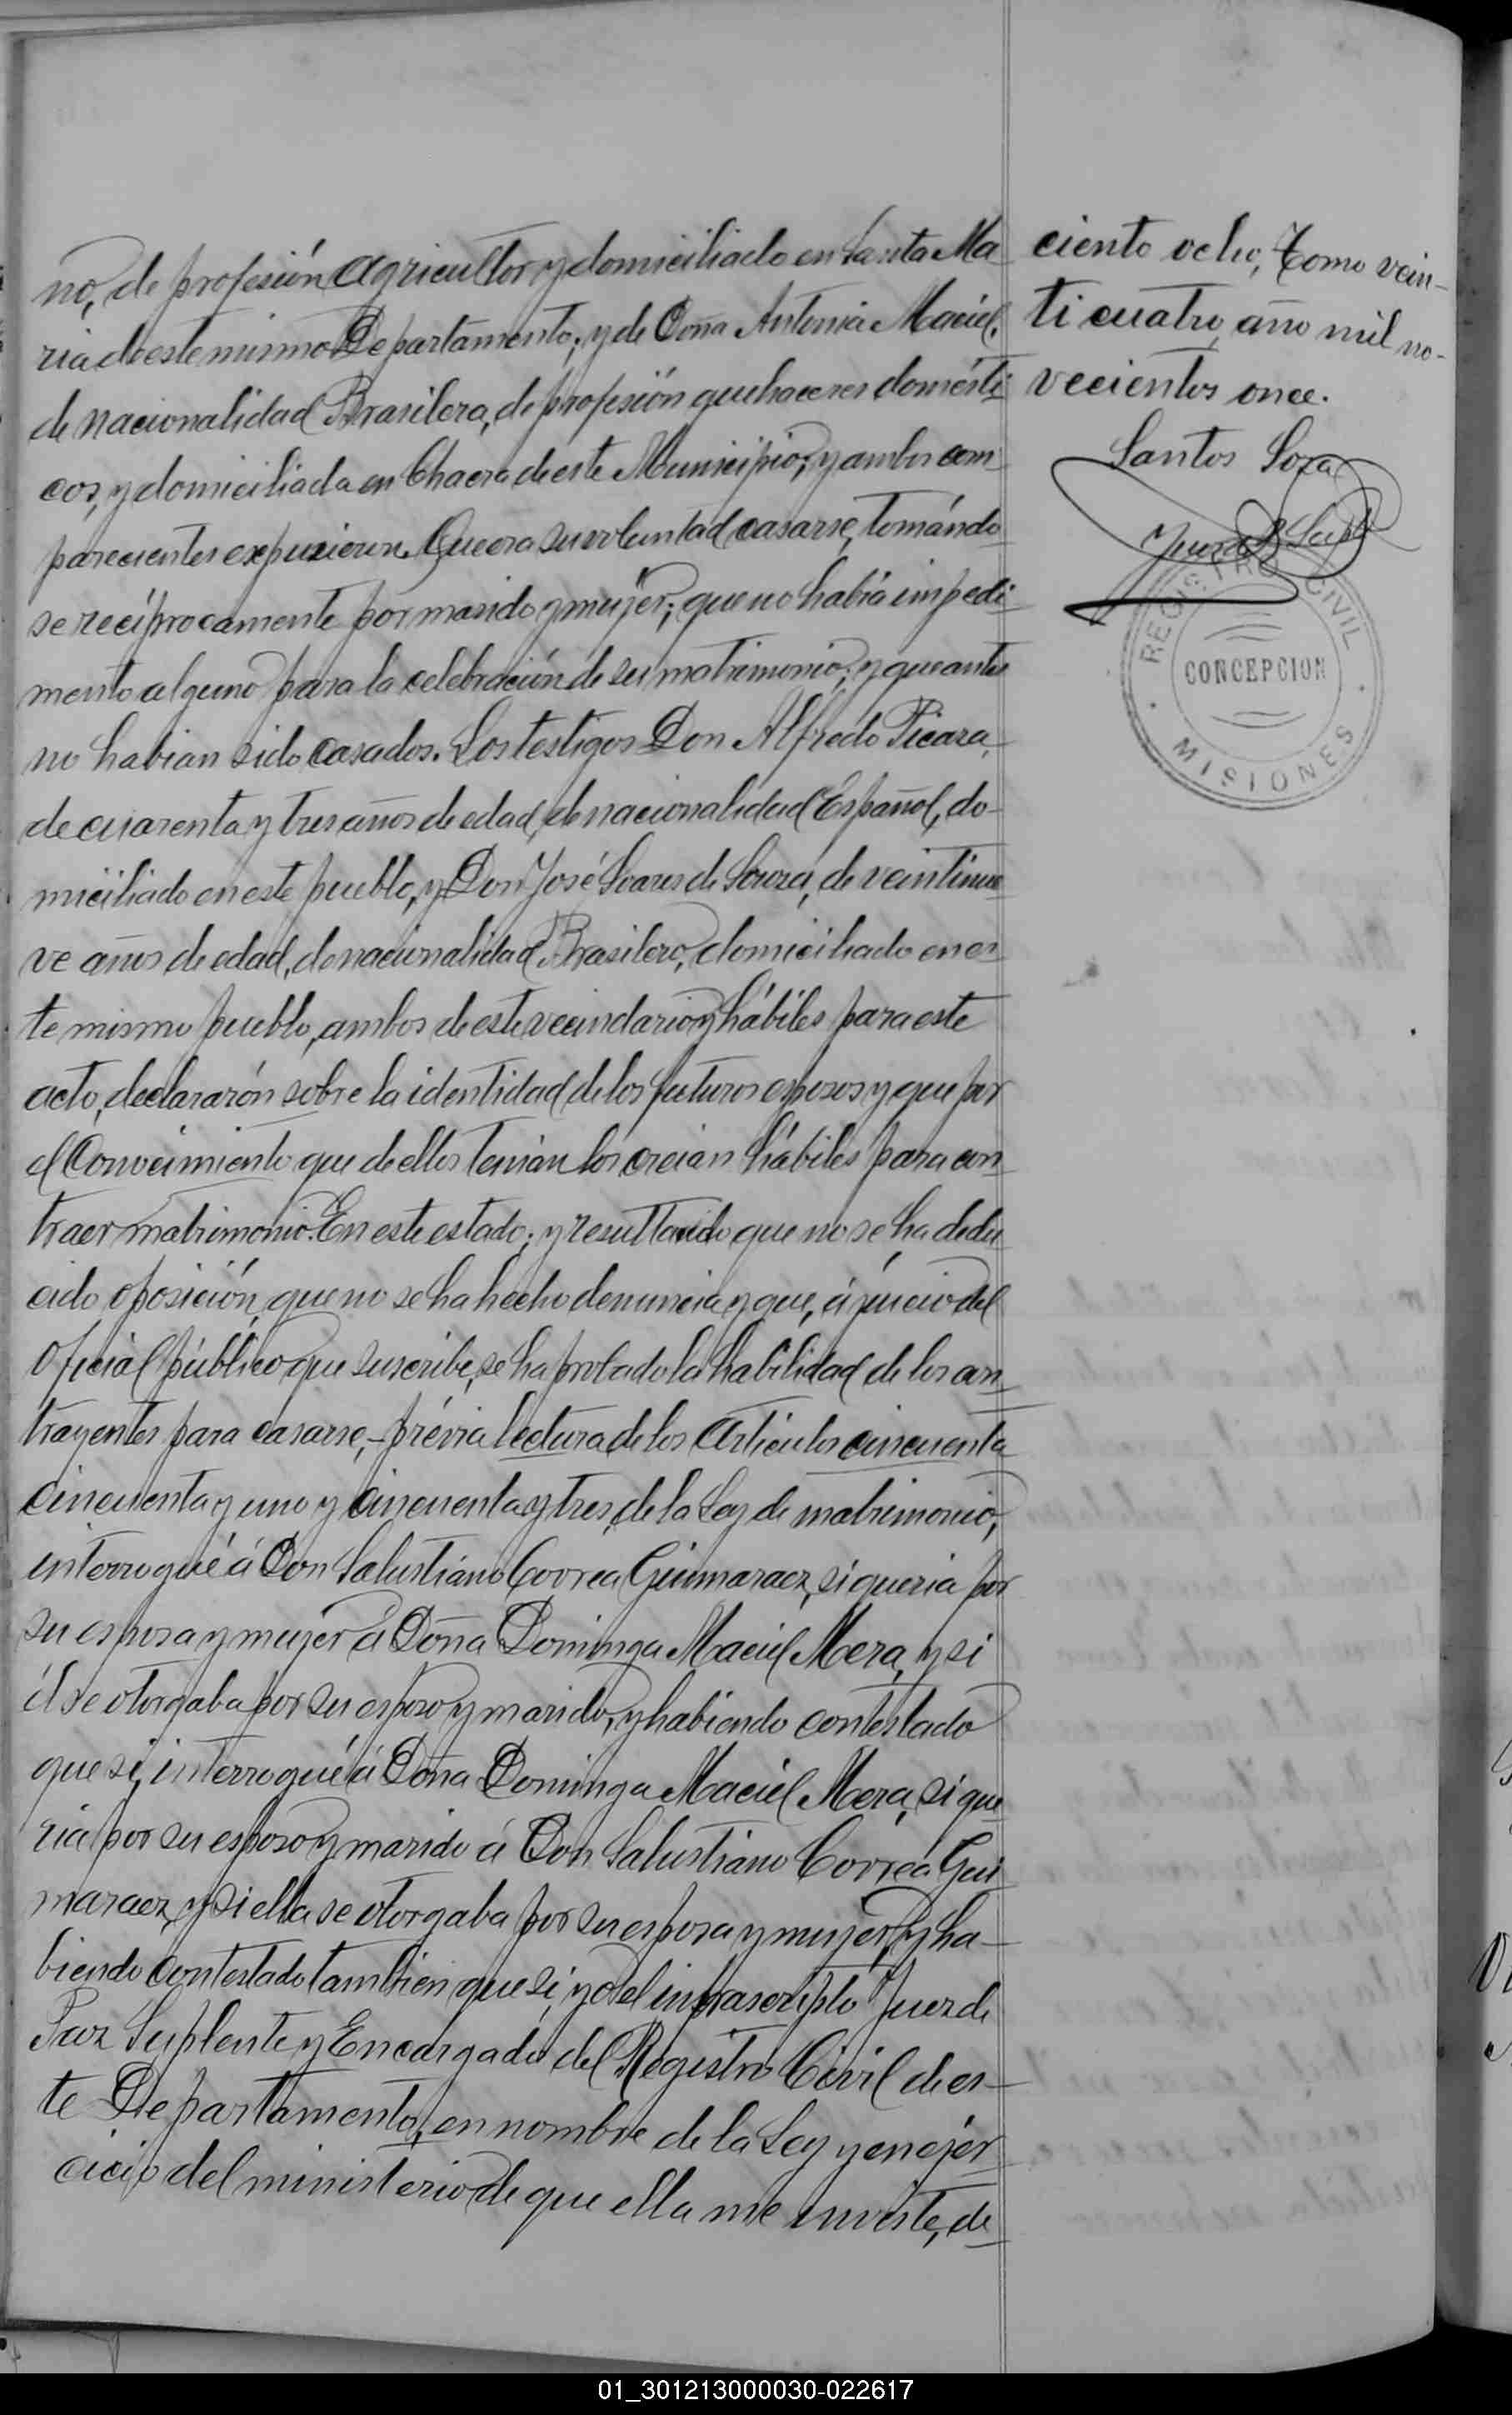 no, de profesión Agricultor y domiciliado en Santa Ma
ria de este mismo Departamento; y de Doña Antonia Maciel,
de nacionalidad Brasilera, de profesión quehaceres domésti
cos, y domiciliada en Chacra de este Municipio; y ambos com
parecientes expusieron. Que era su voluntad casarse, tomándo
se recíprocamente por marido y mujer; que no había impedi
mento alguno para la celebración de su matrimonio; y que antes
no habian sido casados. Los testigos Don Alfredo Picaza,
de cuarenta y tres años de edad, de nacionalidad Español, do-
miciliado en este pueblo, y Don José Soares de Souza, de veintinue
ve años de edad, de nacionalidad Brasilero, domiciliado en es
te mismo pueblo, ambos de este vecindario y hábiles para este
acto, declararón sobre la identidad de los futuros esposos y que por
el Conocimiento que de ellos tenian los creian hábiles para con
traer matrimonio. En este estado; y resultando que no se ha dedu
cido oposición, que no se ha hecho denuncia y que, á juicio del
Oficial público que suscribe, se ha probado la habilidad de los con
trayentes para casarse,- prévia lectura de los Articulos cincuenta
cincuenta y uno y cincuenta y tres, de la Ley de matrimonio,
interrogué á Don Salustiano Correa Guimaraez, si queria por
su esposa y mujer á Doña Dominga Maciel Mera, y si
él se otorgaba por su esposo y marido, y habiendo contestado
que si, interrogué á Doña Dominga Maciel Mera, si que
ria por su esposo y marido á Don Salustiano Correa Gui
maraez, y si ella se otorgaba por su esposa y mujer, y ha-
biendo contestado tambien que si, yo el infrascripto Juez de
Paz Suplente y Encargado del Registro Civil de es-
te Departamento, en nombre de la Ley y en ejer
cicio del ministerio de que ella me inviste, de
ciento ocho, Tomo vein-
ti cuatro, año mil no-
vecientos once.
Santos Soza
Juez Supl
REGISTRO CIVIL
CONCEPCION
MISIONES
01_301213000030-022617